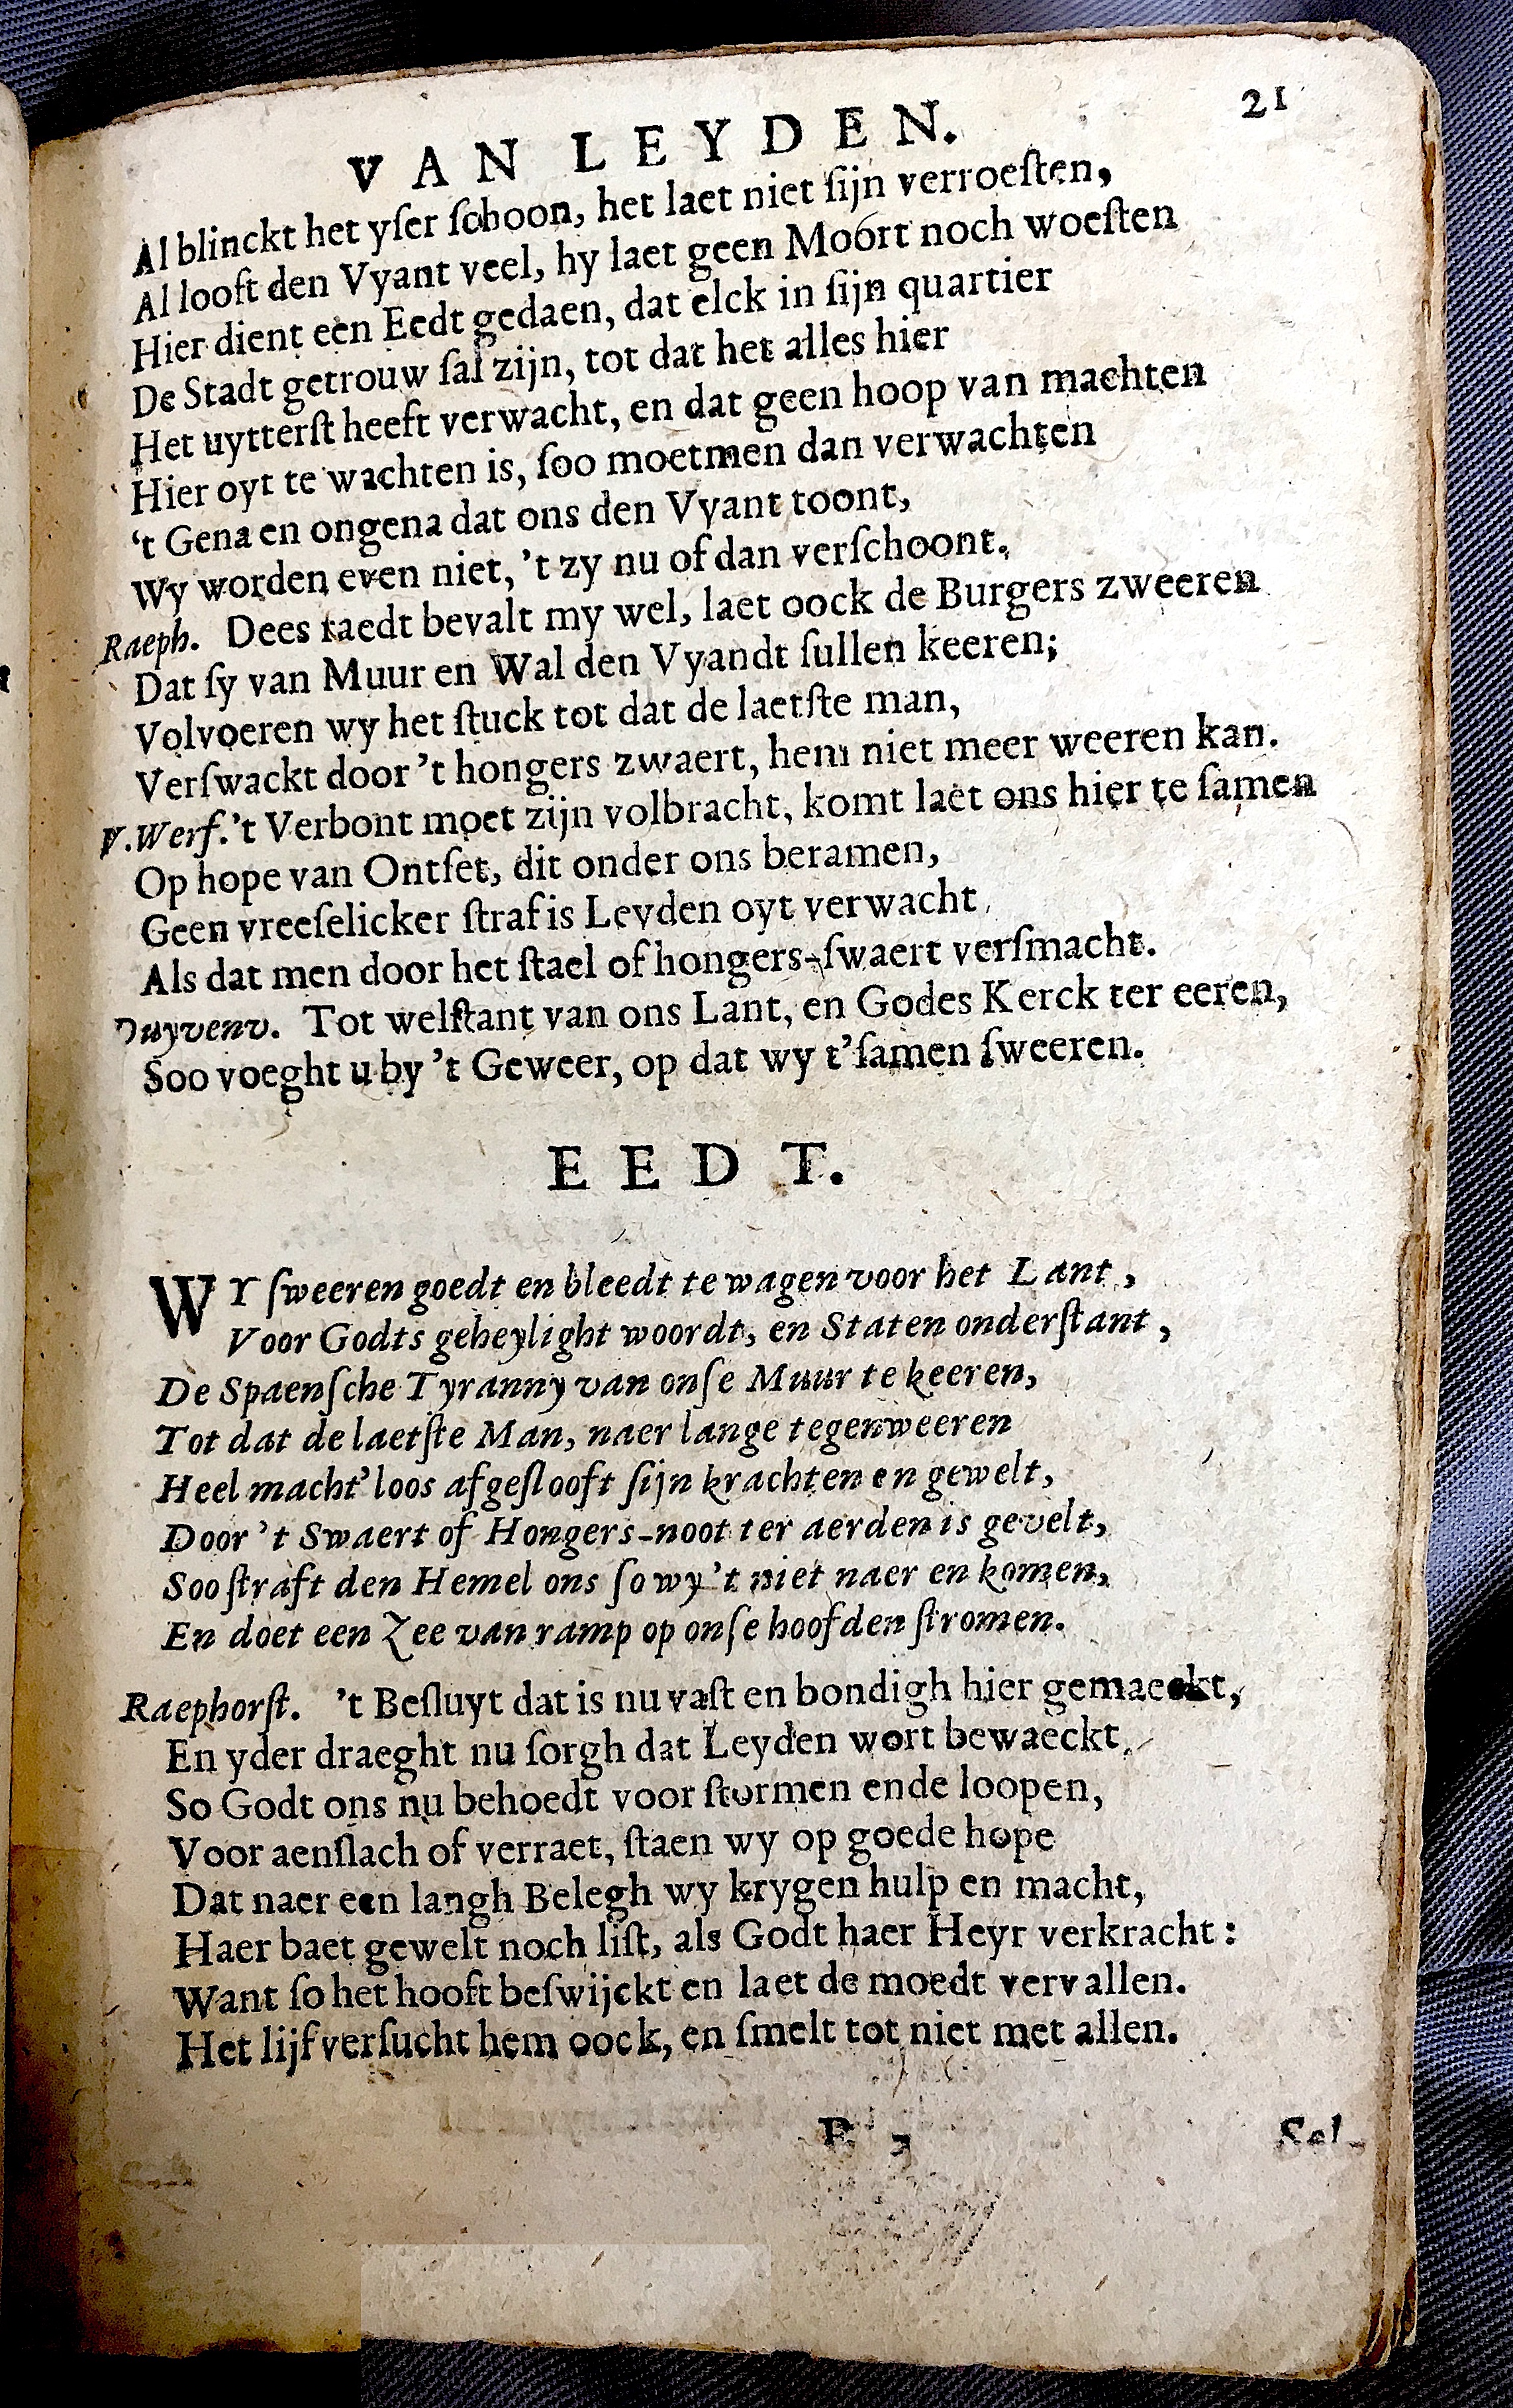 21
VAN LEYDEN.
Al blinckt het yſer ſchoon, het laet niet ſijn verroeſten,
Al looft den Vyant veel, hy laet geen Moort noch woeſten
Hier dient een Eedt gedaen, dat elck in ſijn quartier
De Stadt getrouw ſal zijn, tot dat het alles hier
Het uytterſt heeft verwacht, en dat geen hoop van machten
Hier oyt te wachten is, ſoo moetmen dan verwachten
't Gena en ongena dat ons den Vyant toont,
Wy worden even niet, 't zy nu of dan verſchoont.
Raeph. Dees raedt bevalt my wel, laet oock de Burgers zweeren
Dat ſy van Muur en Wal den Vyandt ſullen keeren;
Volvoeren wy het ſtuck tot dat de laetſte man,
Verſwackt door 't hongers zwaert, hem niet meer weeren kan.
V.Werf. 't Verbont moet zijn volbracht, komt laet ons hier te ſamen
Op hope van Ontſet, dit onder ons beramen,
Geen vreeſelicker ſtraf is Leyden oyt verwacht,
Als dat men door het ſtael of hongers-ſwaert verſmacht.
Duyvenv. Tot welſtant van ons Lant, en Godes Kerck ter eeren,
Soo voeght u by 't Geweer, op dat wy t'ſamen ſweeren.
EEDT.
WY ſweeren goedt en bleedt te wagen voor het Lant,
Voor Godts geheylight woordt, en Staten onderſtant,
De Spaenſche Tyranny van onſe Muur te keeren,
Tot dat de laetſte Man, naer lange tegenweeren
Heel macht'loos afgeſlooft ſijn krachten en gewelt,
Door 't Swaert of Hongers-noot ter aerden is gevelt,
Soo ſtraft den Hemel ons ſo wy 't niet naer en komen,
En doet een Zee van ramp op onſe hoofden ſtromen.
Raephorſt. 't Beſluyt dat is nu vaſt en bondigh hier gemaeckt,
En yder draeght nu ſorgh dat Leyden wort bewaeckt,
So Godt ons nu behoedt voor ſtormen ende loopen,
Voor aenſlach of verraet, ſtaen wy op goede hope
Dat naer een langh Belegh wy krygen hulp en macht,
Haer baet gewelt noch liſt, als Godt haer Heyr verkracht:
Want ſo het hooft beſwijckt en laet de moedt vervallen.
Het lijf verſucht hem oock, en ſmelt tot niet met allen.
Sel-